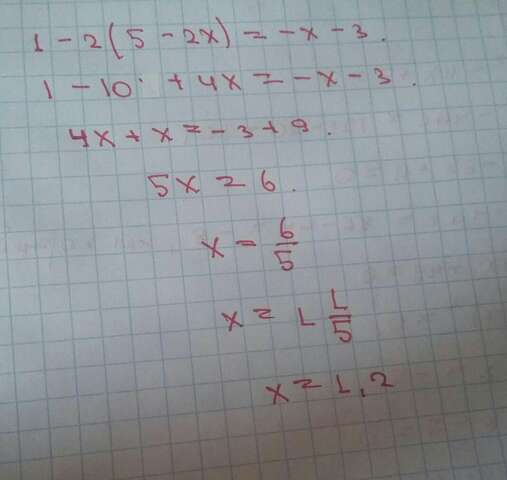 1 - 2(5 - 2x) = -x - 3.
1 - 10 + 4x = -x - 3.
4x + x = -3 + 9.
5x = 6.
x = 6/5
x = 1 1/5
x = 1.2